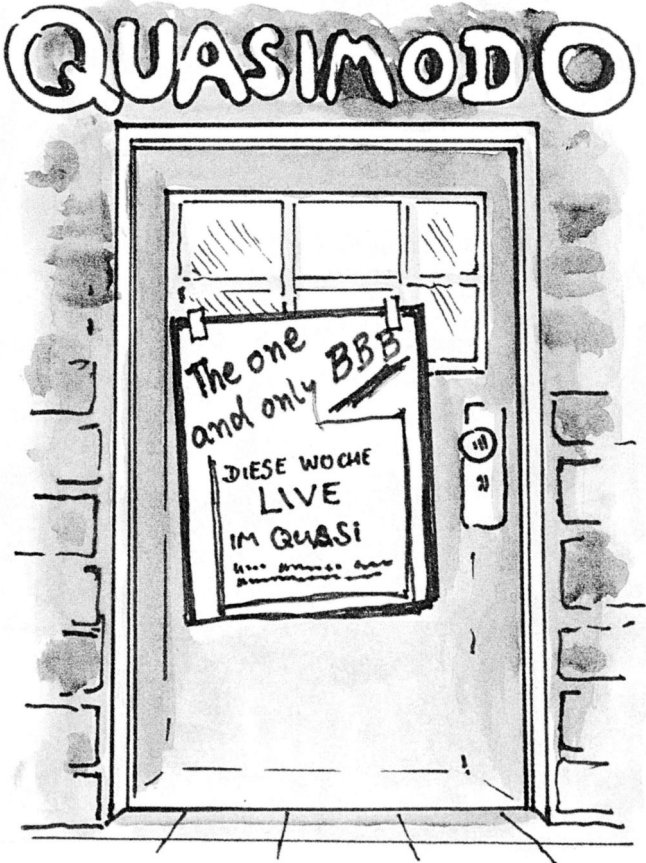 QUASIMODO
The one
and only BBB
DIESE WOCHE
LIVE
IM QUASI